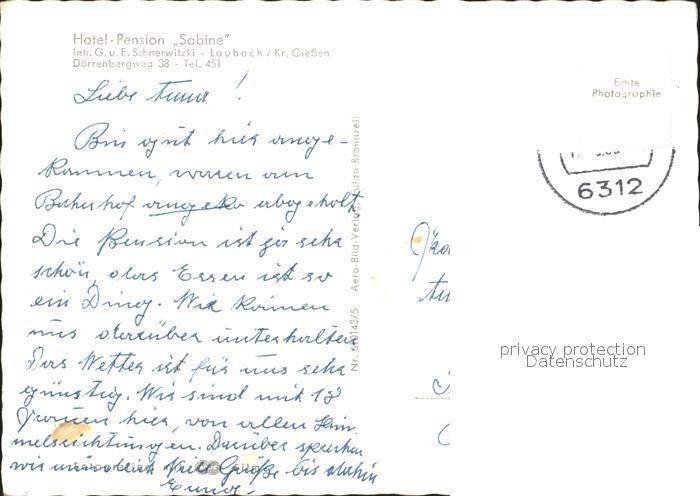 Hotel-Pension „Sabine"
Inh. G. u. E. Schnerwitzki · Laubach / Kr. Gießen
Dörrenbergweg 38 · Tel. 451
Echte
Photographie
6312
Liebe Anna !
Bin gut hier ange-
kommen, waren am
Bahnhof angeko abgeholt.
Die Pension ist ja sehr
schön, das Essen ist so
ein Ding. Wir können
uns darüber unterhalten
Das Wetter ist für uns sehr
günstig. Wir sind mit 18
Frauen hier, von allen Him-
melsrichtungen. Darüber sprechen
wir mündlich Viele Grüße bis dahin
Nr. 640143/5 Aero-Bild-Verlag, Fulda-Bronnzell
privacy protection
Datenschutz